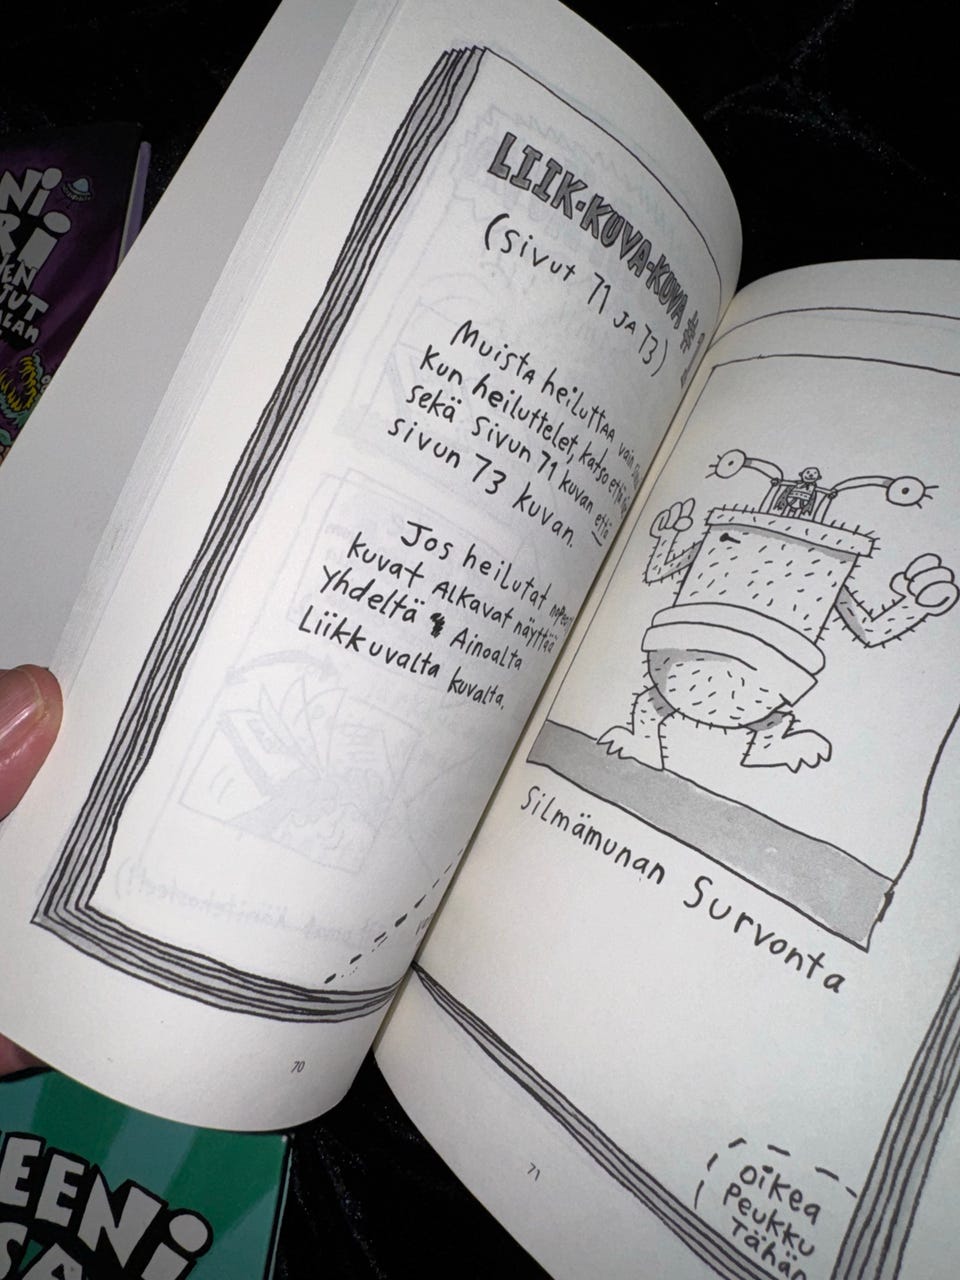 LIIK-KUVA-KUVA
(Sivut 71 JA 73)
Muista heiluttaa vain
Kun heiluttelet, katso että
sekä Sivun 71 kuvan että
sivun 73 kuvan.
Jos heilutat
kuvat ALKAVAT näyttää
Yhdeltä Ainoalta
Liikkuvalta kuvalta.
70
Silmämunan Survonta
71
Oikea
Peukku
Tähän
NI
RI
EENI